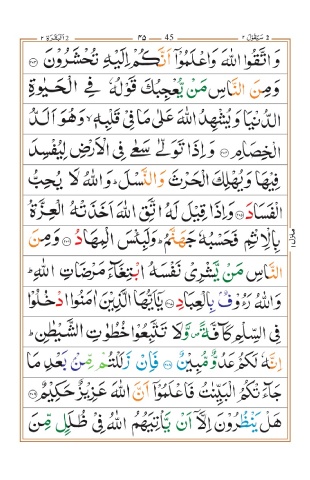 سیقول ۲ ۳۵ 45 البقرة ۲
وَ اتَّقُوا اللّٰهَ وَ اعْلَمُوْۤا اَنَّكُمْ اِلَیْهِ تُحْشَرُوْنَ ﴿۲۰۳﴾
وَ مِنَ النَّاسِ مَنْ یُّعْجِبُكَ قَوْلُهٗ فِی الْحَیٰوةِ
الدُّنْیَا وَ یُشْهِدُ اللّٰهَ عَلٰی مَا فِیْ قَلْبِهٖ ۙ وَ هُوَ اَلَدُّ
الْخِصَامِ ﴿۲۰۴﴾ وَ اِذَا تَوَلّٰی سَعٰی فِی الْاَرْضِ لِیُفْسِدَ
فِیْهَا وَ یُهْلِكَ الْحَرْثَ وَ النَّسْلَ ؕ وَ اللّٰهُ لَا یُحِبُّ
الْفَسَادَ ﴿۲۰۵﴾ وَ اِذَا قِیْلَ لَهُ اتَّقِ اللّٰهَ اَخَذَتْهُ الْعِزَّةُ
بِالْاِثْمِ فَحَسْبُهٗ جَهَنَّمُ ؕ وَ لَبِئْسَ الْمِهَادُ ﴿۲۰۶﴾ وَ مِنَ
النَّاسِ مَنْ یَّشْرِیْ نَفْسَهُ ابْتِغَآءَ مَرْضَاتِ اللّٰهِ ؕ
وَ اللّٰهُ رَءُوْفٌۢ بِالْعِبَادِ ﴿۲۰۷﴾ یٰۤاَیُّهَا الَّذِیْنَ اٰمَنُوا ادْخُلُوْا
فِی السِّلْمِ كَآفَّةً ۪ وَّ لَا تَتَّبِعُوْا خُطُوٰتِ الشَّیْطٰنِ ؕ
اِنَّهٗ لَكُمْ عَدُوٌّ مُّبِیْنٌ ﴿۲۰۸﴾ فَاِنْ زَلَلْتُمْ مِّنْۢ بَعْدِ مَا
جَآءَتْكُمُ الْبَیِّنٰتُ فَاعْلَمُوْۤا اَنَّ اللّٰهَ عَزِیْزٌ حَكِیْمٌ ﴿۲۰۹﴾
هَلْ یَنْظُرُوْنَ اِلَّاۤ اَنْ یَّاْتِیَهُمُ اللّٰهُ فِیْ ظُلَلٍ مِّنَ